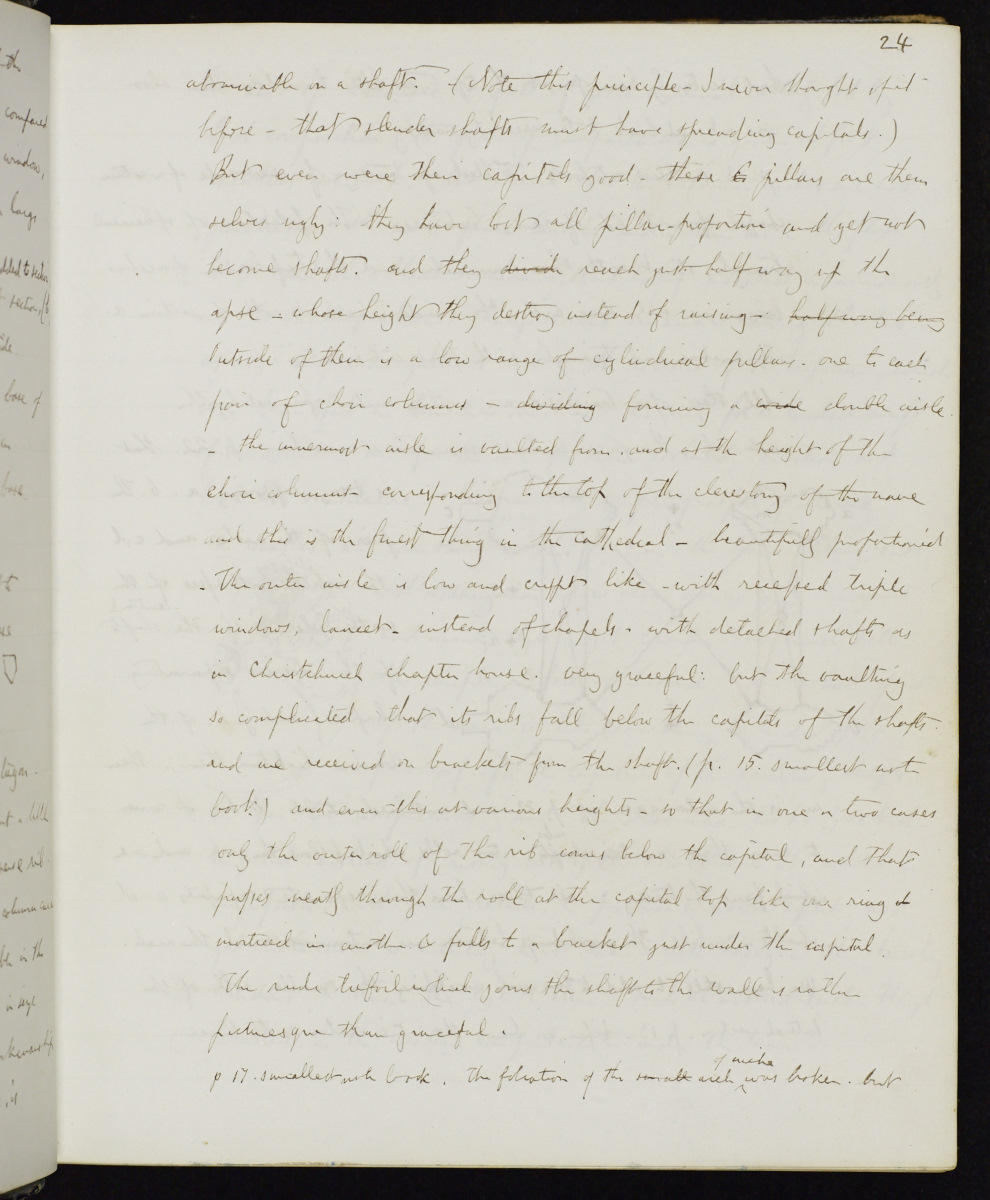 24
abominable on a shaft. (Note this principle - I never thought of it
before - that slender shafts must have spreading capitals.)
But even were their capitals good - these pillars are them
selves ugly: they have lost all pillar-proportion and yet not
become shafts. and they divide reach just half way up the
apse - whose height they destroy instead of raising - half way being
Outside of them is a low range of cylindrical pillars. one to each
pair of choir columns - dividing forming a wide double aisle.
- the innermost aisle is vaulted from. and at the height of the
choir columns corresponding to the top of the clerestory of the nave
and this is the finest thing in the cathedral - beautifully proportioned
- The outer aisle is low and crypt like - with recessed triple
windows, lancet - instead of chapels - with detached shafts as
in Christchurch chapter house. very graceful: but the vaulting
so complicated that its ribs fall below the capitals of the shafts.
and are received on brackets from the shaft. (p. 15. smallest note
book) and even this at various heights - so that in one or two cases
only the outer roll of the rib comes below the capital, and that
passes neatly through the roll at the capital top like one ring
morticed in another. & falls to a bracket just under the capital.
The rude trefoil which joins the shaft to the wall is rather
picturesque than graceful.
of niche
p 17. smallest note book. The foliation of the small arch was broken. but
the
compared
window,
large
section
base of
base
little
rib
in the
in size